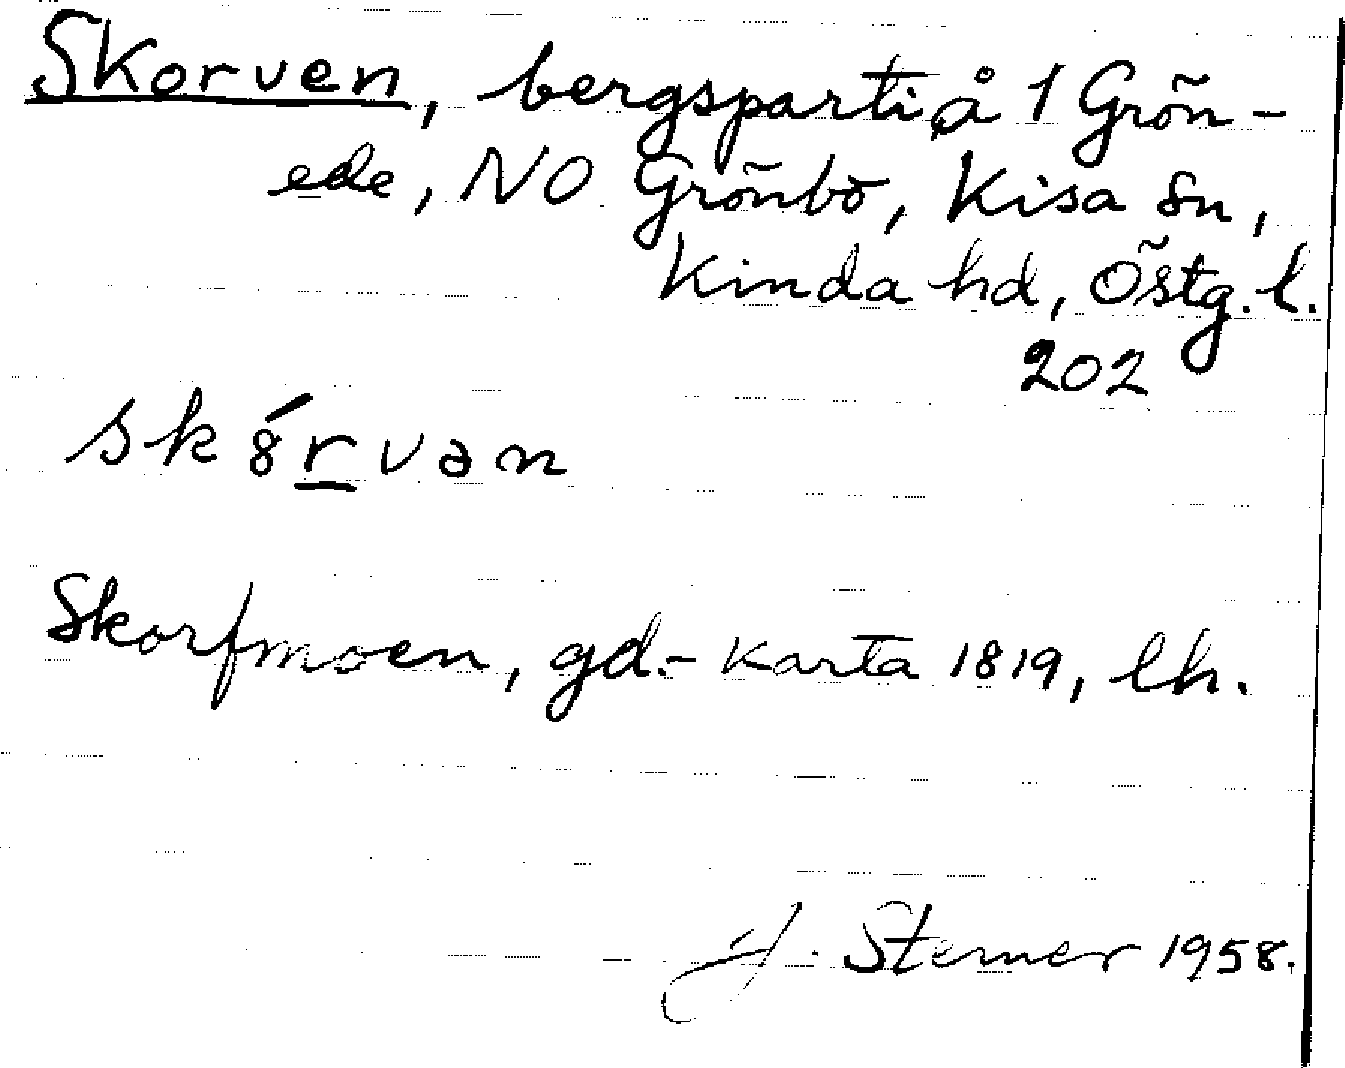 Skorven, bergsparti å 1 Grön-
ede, NO Grönbo, Kisa sn,
Kinda hd, Östg. l.
202
sk8́rvan
Skorfmoen, gd.- karta 1819, lh.
Sterner 1958.